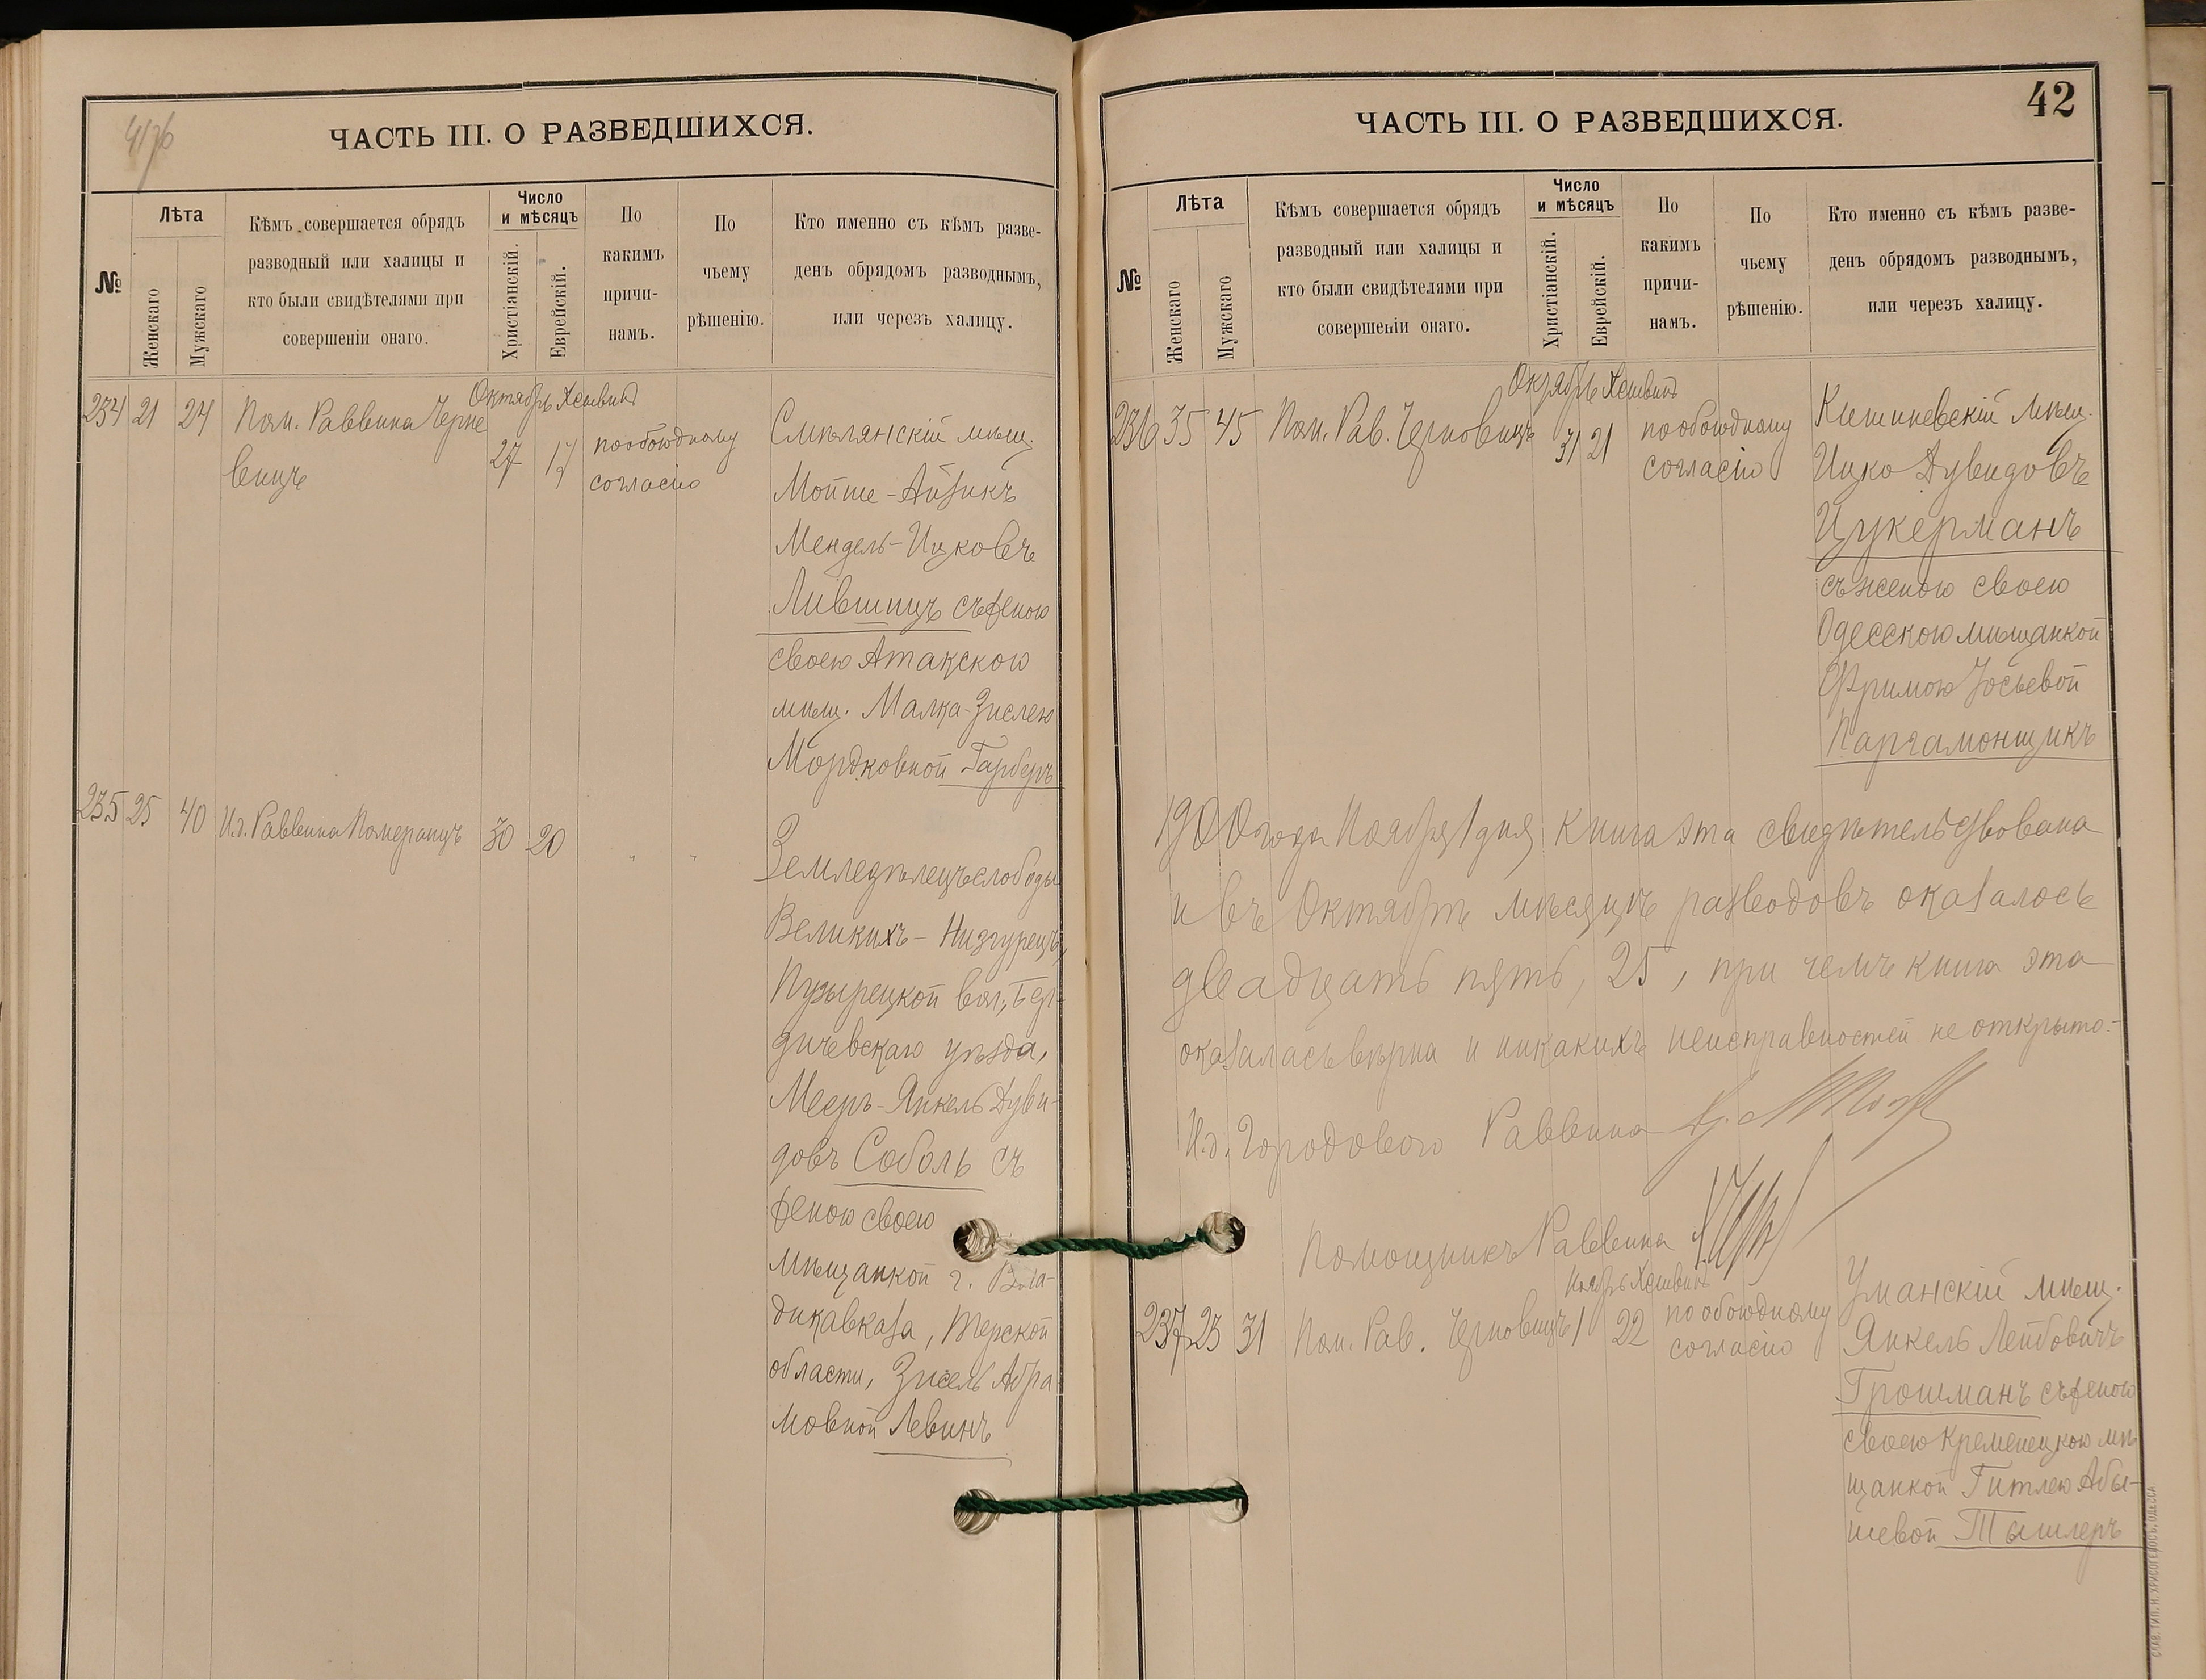 ЧАСТЬ III. О РАЗВЕДШИХСЯ.
№
Лѣта
Женскаго
Мужскаго
Кѣмъ совершается обрядъ
разводный или халицы и
кто были свидѣтелями при
совершеніи онаго.
Число
и мѣсяцъ
Христіанскій.
Еврейскій.
По
какимъ
причи-
намъ.
По
чьему
рѣшенію.
Кто именно съ кѣмъ разве-
денъ обрядомъ разводнымъ,
или черезъ халицу.
Октябрь Хешвинъ
234 21 24 Пом. Раввина Черно
вицъ
27 17
по обоюдному
согласію
Смѣлянскій мѣщ.
Мойше-Айзикъ
Мендель-Ицковъ
Лившицъ съ женою
своею Атакскою
мѣщ. Малка-Зислею
Мордковной Гарберъ
235 25 40 И.д. Раввина Померанцъ 30 20 " "
Земледѣлецъ слободы
Великихъ-Низгурецъ,
Пузырецкой вол., Бер-
дичевскаго уѣзда,
Мееръ-Янкель Дуви-
довъ Соболь съ
женою своею
мѣщанкой г. Вла-
дикавказа, Терской
области, Зисель Абра
мовной Левинъ
42
ЧАСТЬ III. О РАЗВЕДШИХСЯ.
№
Лѣта
Женскаго
Мужскаго
Кѣмъ совершается обрядъ
разводный или халицы и
кто были свидѣтелями при
совершеніи онаго.
Число
и мѣсяцъ
Христіанскій.
Еврейскій.
По
какимъ
причи-
намъ.
По
чьему
рѣшенію.
Кто именно съ кѣмъ разве-
денъ обрядомъ разводнымъ,
или черезъ халицу.
Октябрь Хешвинъ
236 35 45 Пом. Рав. Черновицъ 31 21
по обоюдному
согласію
Кишиневскій мѣщ.
Ицко Дувидовъ
Цукерманъ
съ женою своею
Одесскою мѣщанкой
Фримою Іосьевой
Паргамонщикъ
1900 года Ноября 1 дня книга эта свидѣтельствована
и въ Октябрѣ мѣсяцѣ разводовъ оказалось
двадцать пять, 25, при чемъ книга эта
оказалась вѣрна и никакихъ неисправностей не открыто.-
И.д. Городового Раввина
Помощникъ Раввина
Ноябрь Хешвинъ
237 23 31 Пом. Рав. Черновицъ 1 22
по обоюдному
согласію
Уманскій мѣщ.
Янкель Лейбовичъ
Грошманъ съ женою
своею Кременецкою мѣ
щанкой Гитлею Абы-
шевой Тышлеръ
СЛАВ. ТИП. Н. ХРИСОГЕЛОСЪ, ОДЕССА